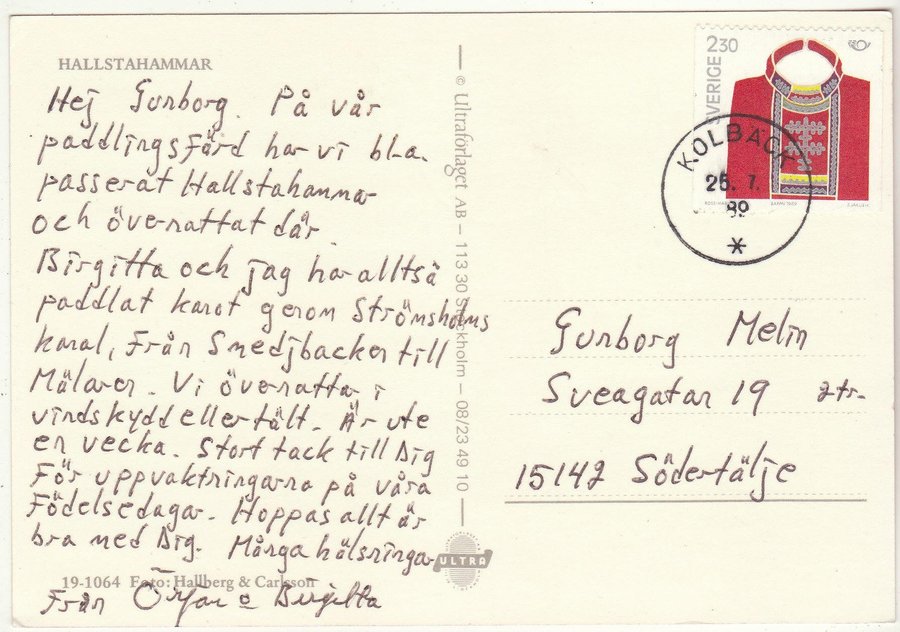 HALLSTAHAMMAR
Hej Gunborg. På vår
paddlingsfärd har vi bl.a.
passerat Hallstahammar
och övernattat där
Birgitta och jag har alltså
paddlat kanot genom Strömsholms
kanal, från Smedjbacken till
Mälaren. Vi övernattar i
vindskydd eller tält. Är ute
en vecka. Stort tack till Dig
för uppvaktningarna på våra
födelsedagar. Hoppas allt är
bra med Dig. Många hälsningar
19-1064 Foto: Hallberg & Carlsson
Från Örjan o Birgitta
© Ultraförlaget AB – 113 30 Stockholm – 08/23 49 10
ULTRA
2 30
SVERIGE
KOLBÄCK
25. 7.
89
Gunborg Melin
Sveagatan 19 2 tr.
15142 Södertälje